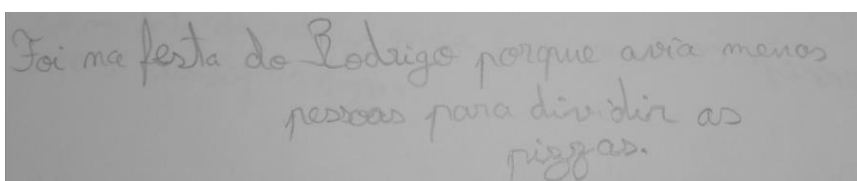 Foi na festa do Rodrigo porque avia menos
pessoas para dividir as
pizzas.